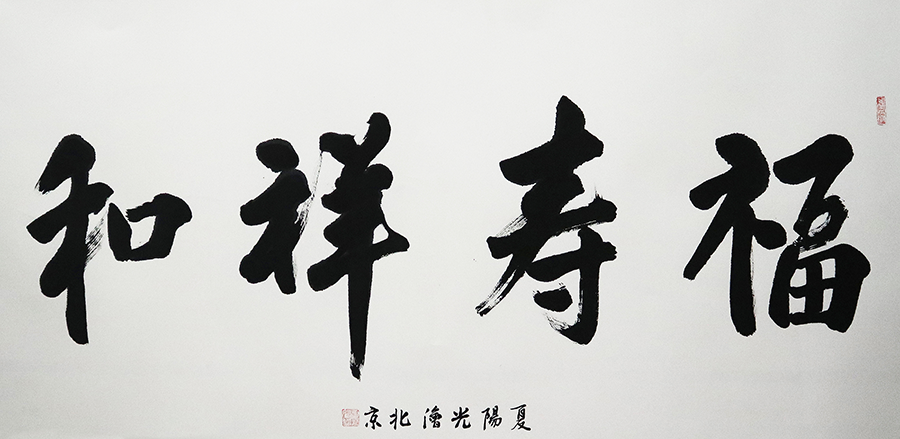 福寿祥和
夏陽光北京